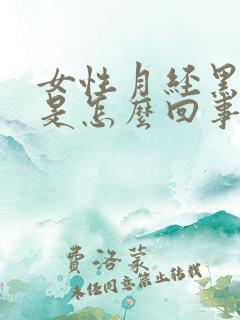 女性月经黑
是怎麼回事
費洛蒙
未经同意禁止转载